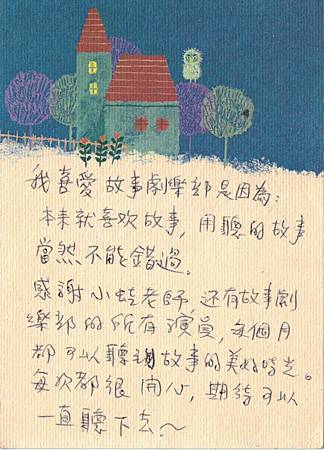 我喜愛故事劇樂部是因為:
本來就喜欢故事,用聽的故事
當然不能錯過。
感謝小蛙老師,还有故事劇
樂部的所有演員,每個月
都可以聽說故事的美好時光。
每次都很開心,期待可以
一直聽下去~